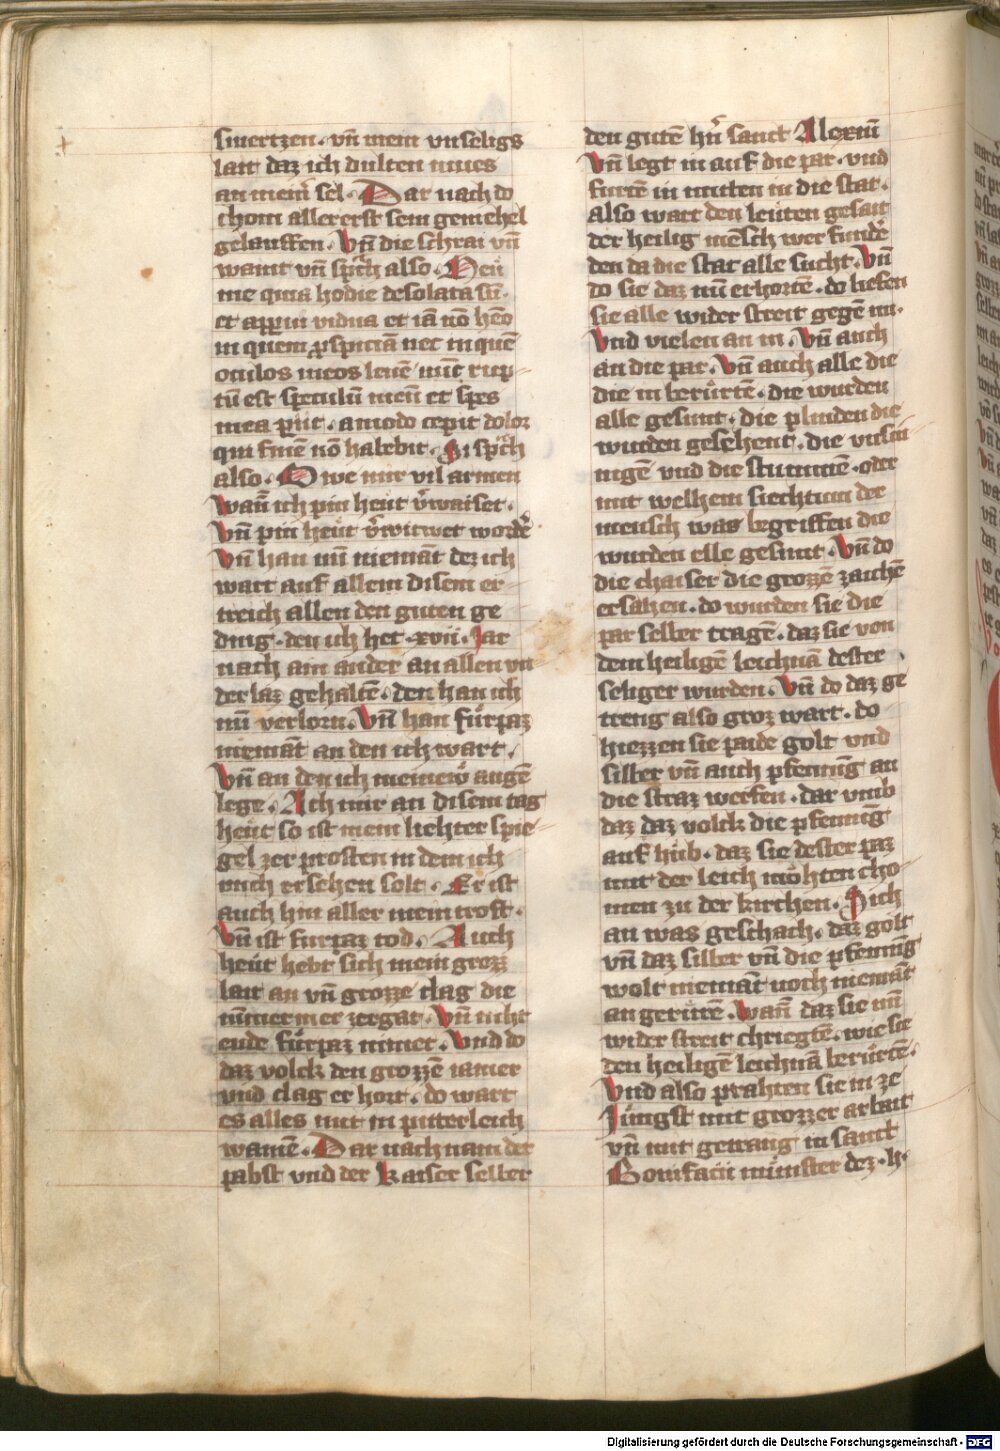 smertzen · vn̄ mein vnseligs
lait daz ich dulten mues
an meiner sel · Dar nach do
chom allererst sein gemehel
gelauffen · Vn̄ die schrai vn̄
waint vn̄ sprch also · Heu
me quia hodie desolata sū ·
et apparui vidua et iā nō heō
in quem ꝓspiciā nec in quē
oculos meos leuē · nūc rup⸗
tū est speculū meū et spes
mea periit · amodo cepit dolor
qui finē nō habebit · Si sprch
also · O we mir vil armen
wan̄ ich pin heut v̄waiset ·
Vn̄ pin heut v̄witwet wordē
Vn̄ han nū niemāt dez ich
wart auf allem disem er⸗
treich allen den guten ge
ding · den ich het · xvii · Jar
nach ain ander an allen vn
derlaz gehaltē · den han ich
nū verlorn · Vn̄ han fürpaz
niemāt an den ich wart ·
Vn̄ an den ich meinew augē
lege · Ach mir an disem tag
heut so ist mein liehter spie⸗
gel zer prosten in dem ich
mich ersehen solt · Er ist
auch hin aller mein trost ·
Vn̄ ist furpaz tod · Auch
heut hebt sich mein grozz
lait an vn̄ grozze clag die
nimmer mer zergat · Vn̄ nicht
ende fürpaz nimet · Vnd do
daz volck den grozzē iamer
vnd clag er hort · do wart
es alles mit in pitterleich
wainē · Dar nach nam der
pabst vnd der kaiser selber
den gutē hn̄ sanct Alexiū
Vn̄ legt in auf die par · vnd
furtē in mitten in die stat ·
also wart den leuten gesait
der heilig mēsch wer fundē
den da die stat alle sucht · Vn̄
do sie daz nū erhortē · do liefen
sie alle wider streit gegē im ·
Vnd vielen an in · Vn̄ auch
an die par · Vn̄ auch alle die
die in berürtē · die wurden
alle gesunt · die plinden die
wurden gesehent · die vnsin
nigē vnd die stummē · oder
mit welhem siechtum der
mensch was begriffen die
wurden elle gesunt · Vn̄ do
die chaiser die grozzē zaichē
ersahen · do wurden sie die
par selber tragē · daz sie von
dem heiligē leichnā dester
seliger wurden · Vn̄ do daz ge
treng also groz wart · do
hiezzen sie paide golt vnd
silber vn̄ auch pfenning an
die straz werfen · dar vmb
daz daz volck die pfenning
auf hüb · daz sie dester paz
mit der leich möhten cho⸗
men zu der kirchen · Sich
an was geschach · daz golt
vn̄ daz silber vn̄ die pfennīg
wolt niemāt noch niemāt
an gerürē · wan̄ daz sie nū
wider streit chriegtē · wie sie
den heiligē leichnā berürtē ·
Vnd also prahten sie in ze
Jüngst mit grozzer arbait
vn̄ mit getrang in sanct
Bonifacii münster dez · h ·
Digitalisierung gefördert durch die Deutsche Forschungsgemeinschaft - DFG